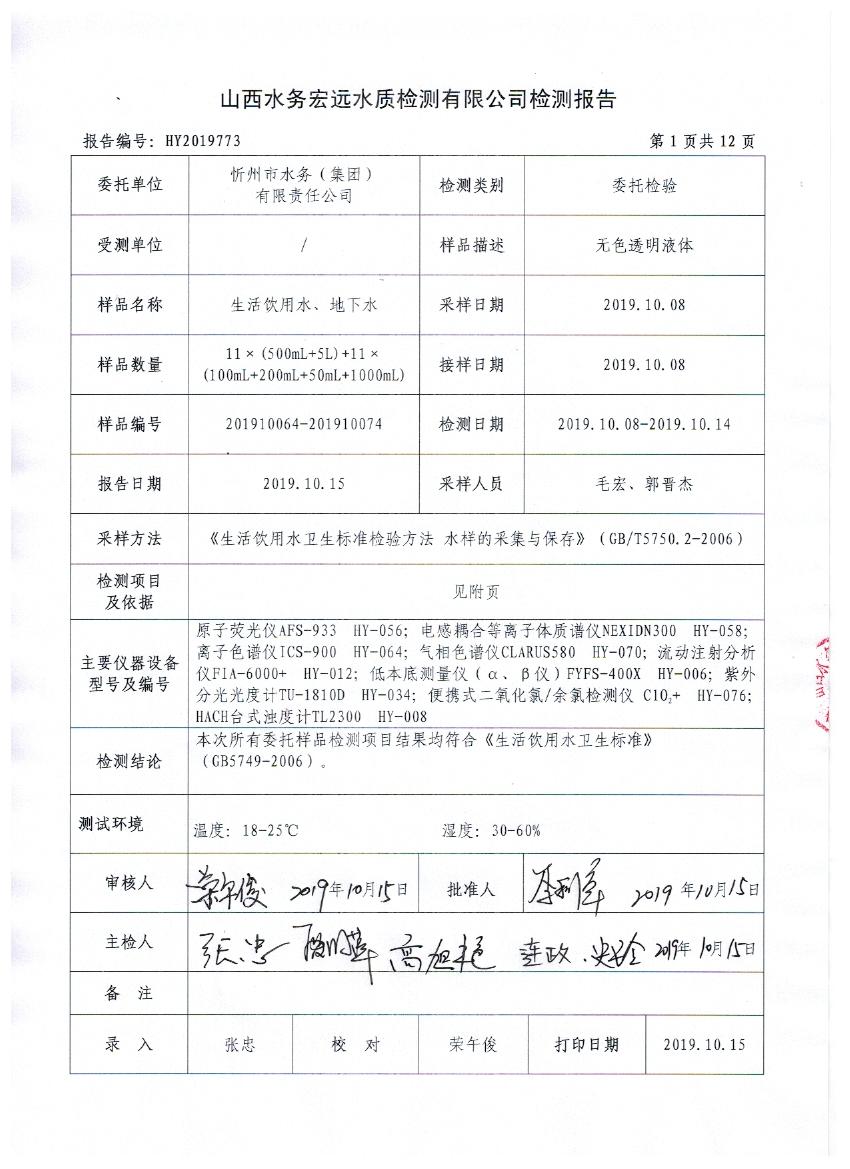 山西水务宏远水质检测有限公司检测报告
报告编号：HY2019773
第 1 页共 12 页
委托单位
忻州市水务（集团）
有限责任公司
检测类别
委托检验
受测单位
/
样品描述
无色透明液体
样品名称
生活饮用水、地下水
采样日期
2019.10.08
样品数量
11×(500mL+5L)+11×
(100mL+200mL+50mL+1000mL)
接样日期
2019.10.08
样品编号
201910064-201910074
检测日期
2019.10.08-2019.10.14
报告日期
2019.10.15
采样人员
毛宏、郭晋杰
采样方法
《生活饮用水卫生标准检验方法 水样的采集与保存》（GB/T5750.2-2006）
检测项目
及依据
见附页
主要仪器设备
型号及编号
原子荧光仪AFS-933 HY-056；电感耦合等离子体质谱仪NEXIDN300 HY-058；
离子色谱仪ICS-900 HY-064；气相色谱仪CLARUS580 HY-070；流动注射分析
仪FIA-6000+ HY-012；低本底测量仪（α、β仪）FYFS-400X HY-006；紫外
分光光度计TU-1810D HY-034；便携式二氧化氯/余氯检测仪 ClO₂+ HY-076；
HACH台式浊度计TL2300 HY-008
检测结论
本次所有委托样品检测项目结果均符合《生活饮用水卫生标准》
（GB5749-2006）。
测试环境
温度：18-25℃
湿度：30-60%
审核人
荣午俊 2019年10月15日
批准人
2019年10月15日
主检人
张忠 高旭艳 连政 2019年10月15日
备 注
录 入
张忠
校 对
荣午俊
打印日期
2019.10.15